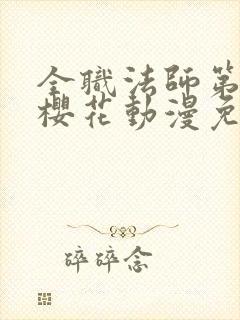 全職法師第
櫻花動漫免
碎碎念